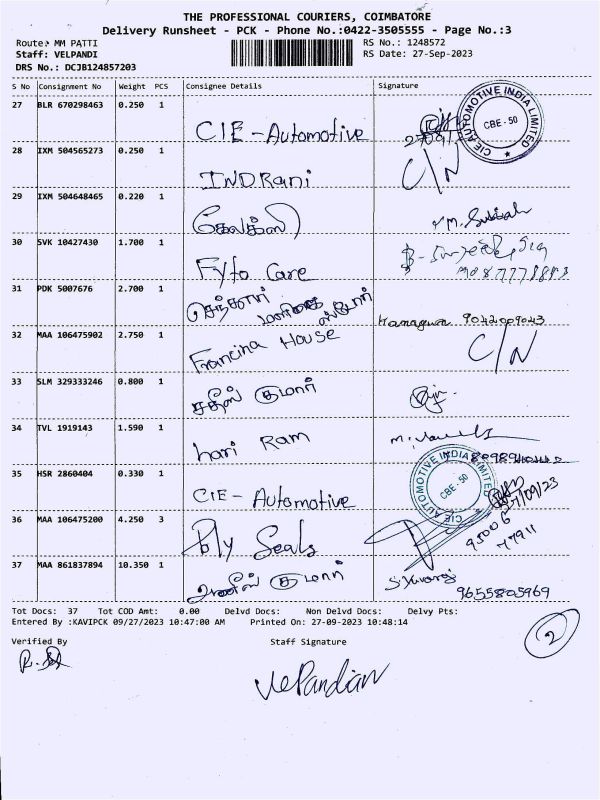 THE PROFESSIONAL COURIERS, COIMBATORE
Delivery Runsheet - PCK - Phone No.:0422-3505555 - Page No.:3
Route: MM PATTI RS No.: 1248572
Staff: VELPANDI RS Date: 27-Sep-2023
DRS No.: DCJB124857203
S No Consignment No Weight PCS Consignee Details Signature
27 BLR 670298463 0.250 1 CIE - Automotive
CIE AUTOMOTIVE INDIA LIMITED CBE - 50
28 IXM 504565273 0.250 1 INDRani C/N
29 IXM 504648465 0.220 1
30 SVK 10427430 1.700 1 Fyto Care
31 PDK 5007676 2.700 1 9042009043
32 MAA 106475902 2.750 1 Francina House C/N
33 SLM 329333246 0.800 1 சதீஸ் குமார்
34 TVL 1919143 1.590 1 hari Ram
35 HSR 2860404 0.330 1 CIE - Automotive
CIE AUTOMOTIVE INDIA LIMITED CBE - 50
27/09/23
36 MAA 106475200 4.250 3 Ply Seals 95006
77911
37 MAA 861837894 10.350 1 9655805969
Tot Docs: 37 Tot COD Amt: 0.00 Delvd Docs: Non Delvd Docs: Delvy Pts:
Entered By :KAVIPCK 09/27/2023 10:47:00 AM Printed On: 27-09-2023 10:48:14
2
Verified By Staff Signature
VelPandian